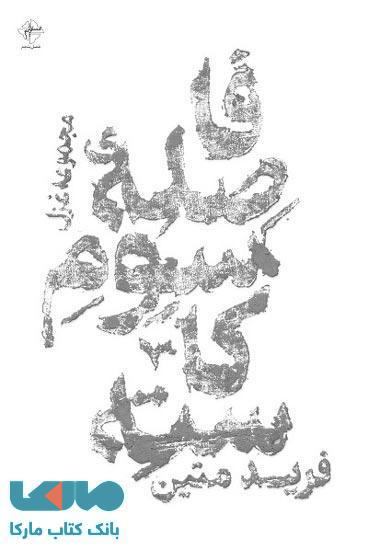 فا
صلهٔ
کسیومِ
کا
سته
مجموعه غزل
فرید متین
مارکا
بانک کتاب مارکا